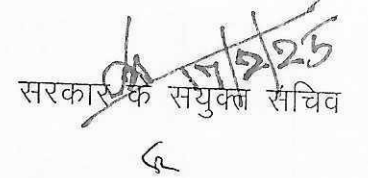 17/2/25
सरकार के संयुक्त सचिव